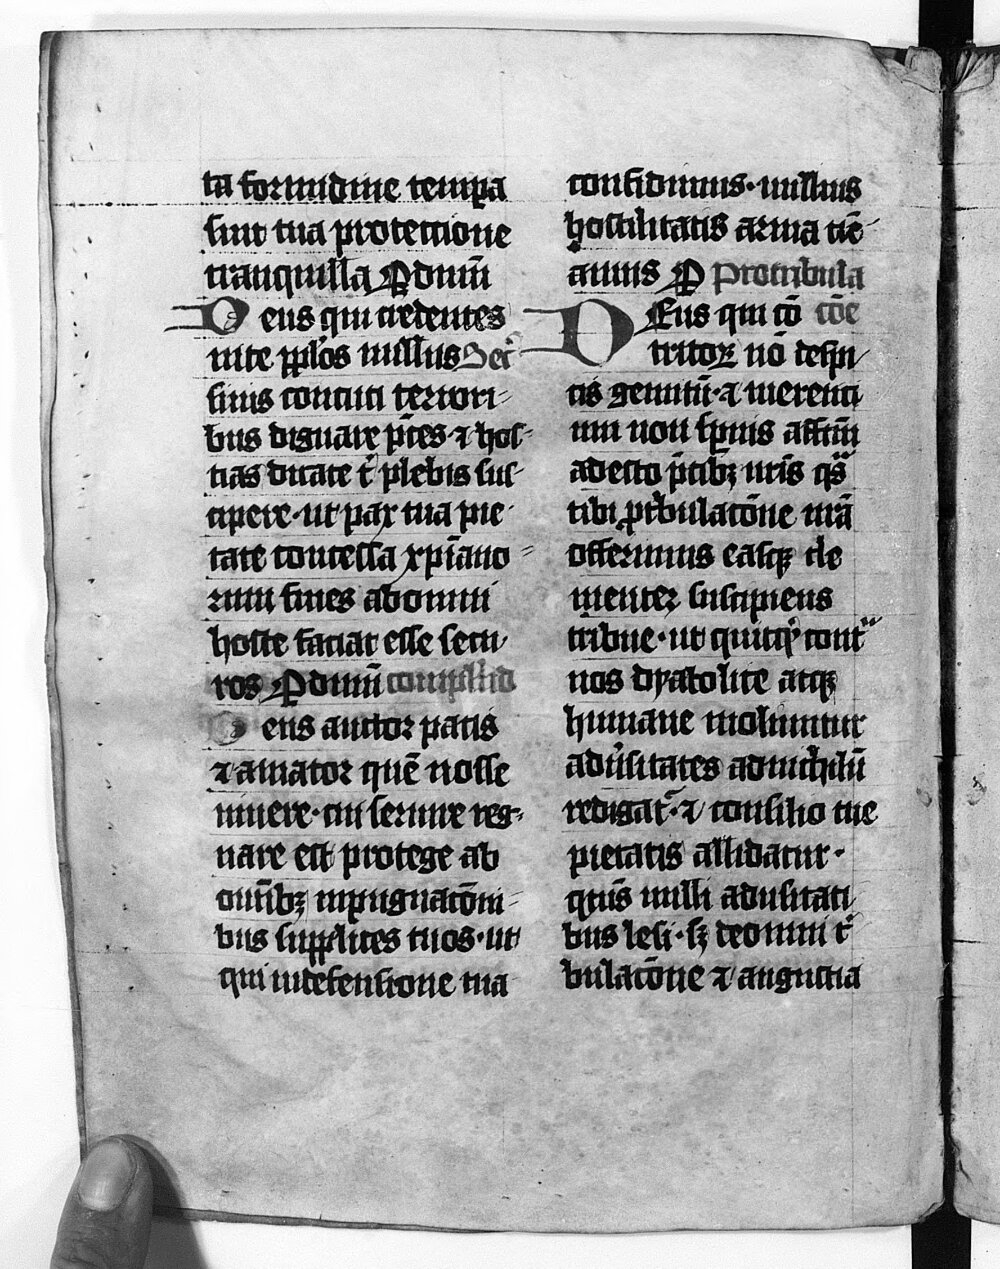 ta formidine tempa
sint tua protectione
tranquilla P dnm̄
Deus qui credentes
in te ppl̄os nullus Sec̄
sinis concuti terrori-
bus dignare p̄ces ⁊ hos-
tias dicate t̄ plebis sus-
cipere · ut pax tua pie
tate concessa xp̄iano-
rum fines ab omni
hoste faciat esse secu-
ros P dnm̄ complēd
Deus auctor pacis
⁊ amator quē nosse
vivere · cui servire reg-
nare est protege ab
omībꝫ inpugnacōni-
bus supplices tuos · ut
qui in defensione tua
confidimus · nullius
hostilitatis arma tīe-
amus P Pro tribula
Deus qui cō cōe
tritoꝝ nō despi-
cis gemitū · ⁊ merenci
um non spnis affc̄m
adesto p̄cibꝫ nr̄is qs̄
tibi p t̄bulacōne nr̄ā
offerimus easqꝫ cle
menter suscipiens
tribue · ut quicqͥ cont̄
nos dyabolice atqꝫ
humane moliuntur
adūsitates ad nichilū
redigat̄ · ⁊ consilio tue
pietatis allidatur ·
qt̄ns nulli adūsitati
bus lesi · sꝫ de omni t̄
bulacōne ⁊ angustia